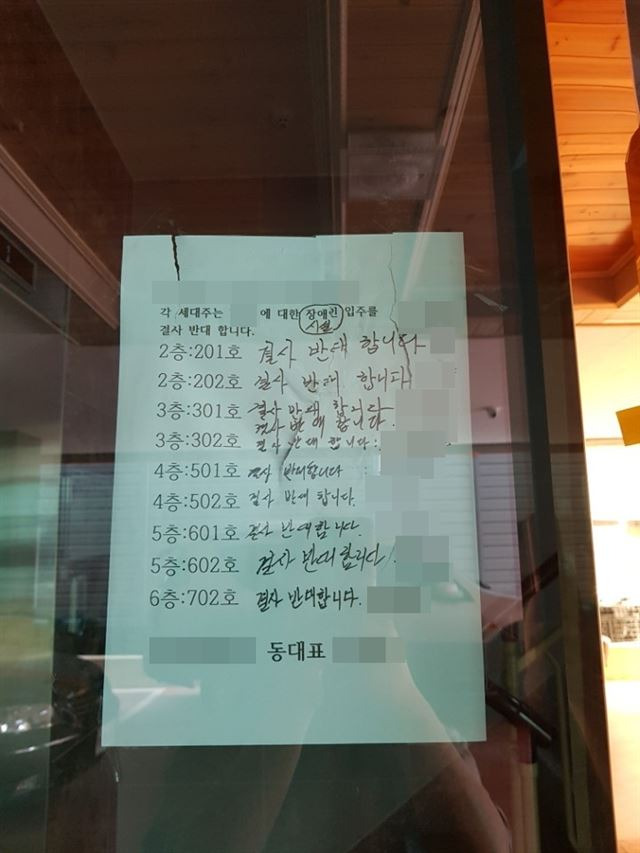 각 세대주는 에 대한 장애인 입주를
시설
결사 반대 합니다.
2층:201호 결사 반대 합니다
2층:202호 결사 반대 합니다
3층:301호 결사 반대 합니다
결사 반대 합니다.
3층:302호 결사 반대 합니다.
4층:501호 결사 반대합니다
4층:502호 결사 반대 합니다.
5층:601호 결사 반대합니다.
5층:602호 결사 반대합니다.
6층:702호 결사 반대합니다.
동대표